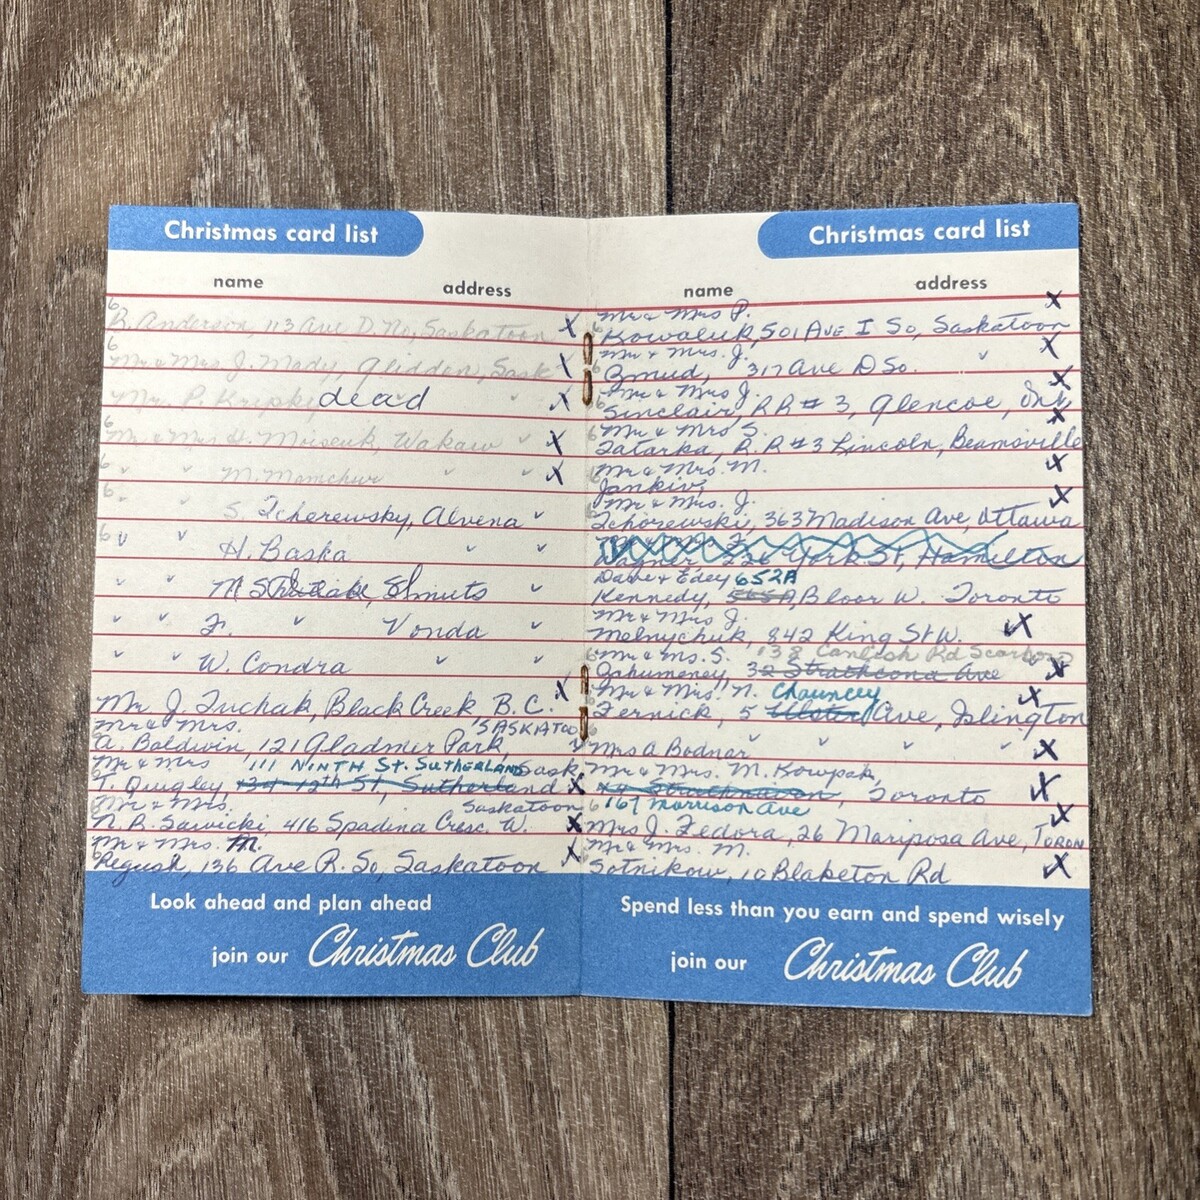 Christmas card list
name address
6 R. Anderson, 113 Ave D. No, Saskatoon X
6 Mr & Mrs J. Mady, Glidden, Sask X
Mr. P. Kripki dead X
6 Mr & Mrs H. Moiseuk, Wakaw ✓ X
6 ✓ ✓ M. Mamchur ✓ ✓ X
6 ✓ ✓ S. Tcherewsky, Alvena ✓
6 ✓ ✓ H. Baska ✓ ✓
✓ ✓ M Smuts ✓
✓ ✓ F. ✓ Vonda ✓
✓ ✓ W. Condra ✓ ✓
Mr. J. Tuchak, Black Creek, B.C. X
Mr & Mrs. SASKATOO
A. Baldwin, 121 Gladmer Park, ✓
Mr & Mrs 111 NINTH ST. SUTHERLAND Sask
T. Quigley, 134 12th St, Sutherland X
Mr & Mrs. Saskatoon
N. R. Sawicki, 416 Spadina Cresc. W. X
Mr & Mrs. M.
6 Regush, 136 Ave R. So, Saskatoon X
Look ahead and plan ahead
join our Christmas Club
Christmas card list
name address
Mr & Mrs P. X
6 Kowaluk, 501 Ave I So, Saskatoon
Mr & Mrs. J. ✓ X
6 Zmud, 317 Ave D So.
Mr & Mrs J. X
6 Sinclair, RR # 3, Glencoe, Ont.
Mr & Mrs S. X
6 Tatarka, R.R #3 Lincoln, Beamsville
Mr & Mrs. M. X
Jankiw,
Mr & Mrs. J. X
6 Tchorewski, 363 Madison Ave, Ottawa
Wagner 226 York St, Hamilton
Dave & Edey 652A
Kennedy, Bloor W. Toronto
Mr & Mrs J.
Melnychuk, 842 King St W. ✓X
6 Mr & Mrs. S. 138 Cantish Rd Scarboro
32 Strathcona Ave X
Mr & Mrs. N. Chauncey X
Fernick, 5 Ulster Ave, Islington
✓ ✓ ✓ ✓
Mrs A Bodnar X
Mr & Mrs. M. Kowpak,
Strathnairn, Toronto X
6 167 Morrison Ave X
Mrs J. Fedora, 26 Mariposa Ave, TORON
Mr & Mrs. M.
Sotnikow, 10 Blaketon Rd X
Spend less than you earn and spend wisely
join our Christmas Club